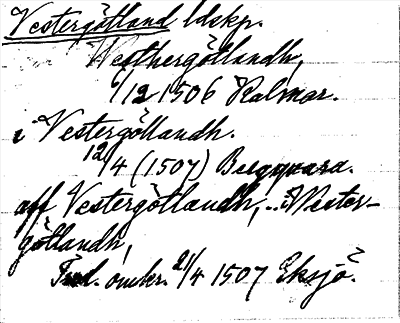 Vestergötland ldskp.
Westhergötlandh,
6/12 1506 Kalmar.
i Vestergötlandh.
12/4 (1507) Bergquara.
aff Vestergötlandh, .. Wester-
götlandh,
omkr. 21/4 1507 Eksjö.